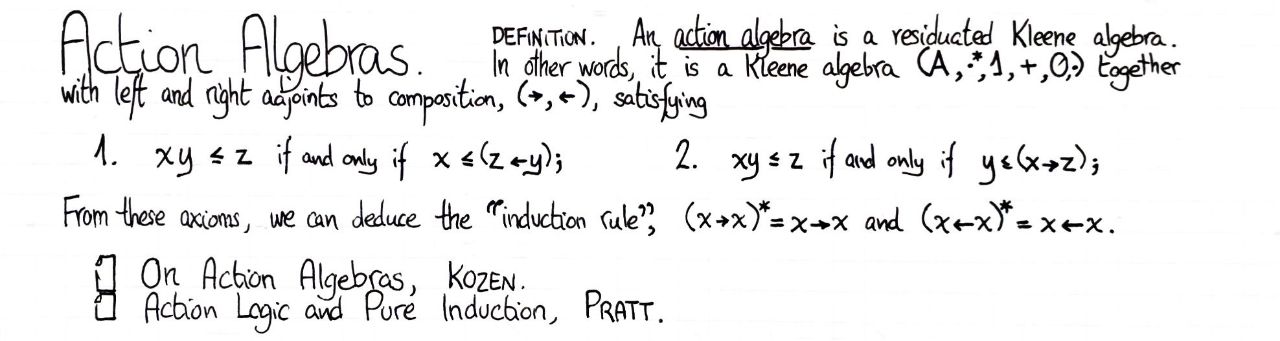 Action Algebras.
DEFINITION. An action algebra is a residuated Kleene algebra.
In other words, it is a Kleene algebra (A,·,*,1,+,0,) together
with left and right adjoints to composition, (→,←), satisfying
1. xy ≤ z if and only if x ≤ (z ← y); 2. xy ≤ z if and only if y ≤ (x → z);
From these axioms, we can deduce the “induction rule”, (x→x)* = x→x and (x←x)* = x←x.
On Action Algebras, KOZEN.
Action Logic and Pure Induction, PRATT.